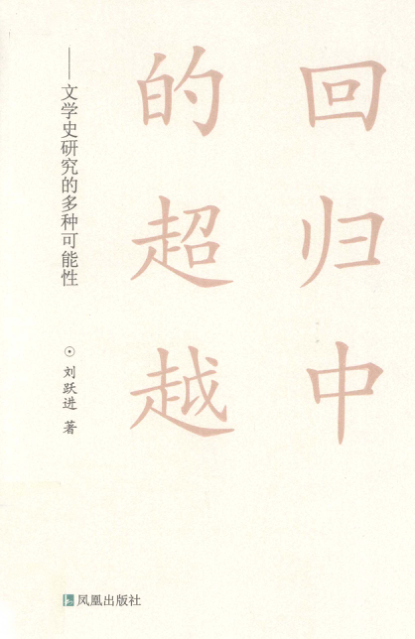 回归中
的超越
——文学史研究的多种可能性
⊙刘跃进 著
凤凰出版社